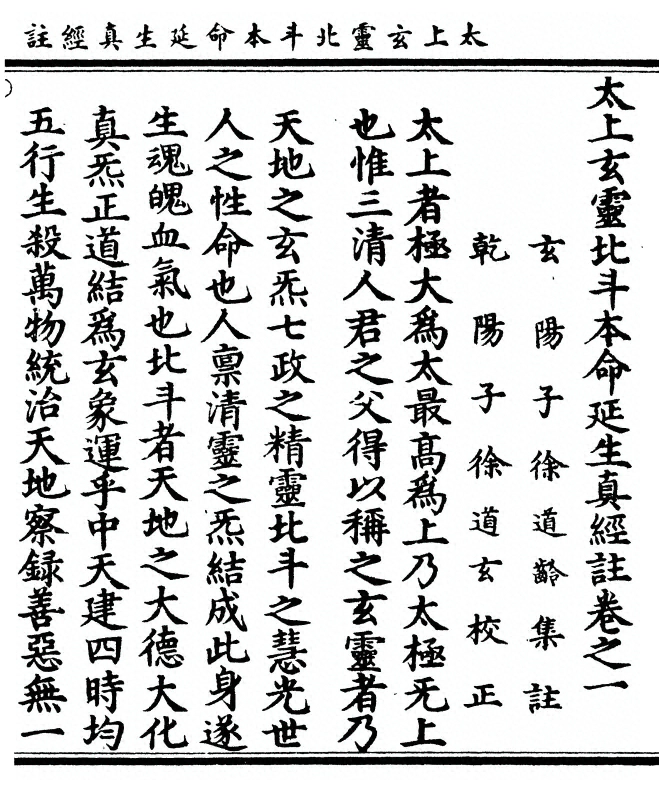 太上玄靈北斗本命延生真經註
太上玄靈北斗本命延生真經註卷之一
玄陽子徐道齡集註
乾陽子徐道玄校正
太上者極大爲太最高爲上乃太極无上
也惟三清人君之父得以稱之玄靈者乃
天地之玄炁七政之精靈北斗之慧光世
人之性命也人禀清靈之炁結成此身遂
生魂魄血氣也北斗者天地之大德大化
真炁正道結爲玄象運乎中天建四時均
五行生殺萬物統治天地察録善惡無一